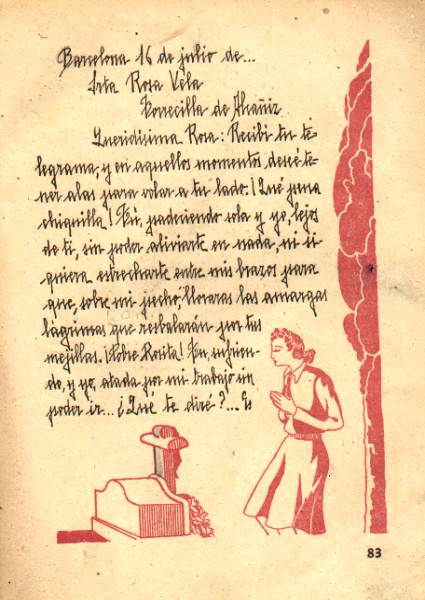 Barcelona 16 de julio de...
Srta Rosa Vela
Torrecilla de Alcañiz
Queridísima Rosa: Recibí tu te-
legrama, y en aquellos momentos deseé te-
ner alas para volar a tu lado. ¡Qué pena
chiquilla! Tú, padeciendo sola y yo, lejos
de ti, sin poder aliviarte en nada, ni si-
quiera estrecharte entre mis brazos para
que, sobre mi pecho, lloraras las amargas
lágrimas que resbalarán por tus
mejillas. ¡Pobre Rosita! Tu, sufrien-
do, y yo, atada por mi trabajo sin
poder ir... ¿Qué te diré?... Es
83